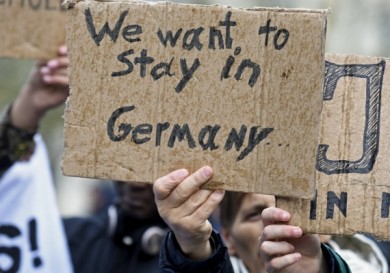 We want to
stay in
Germany...
J
IN M
S!